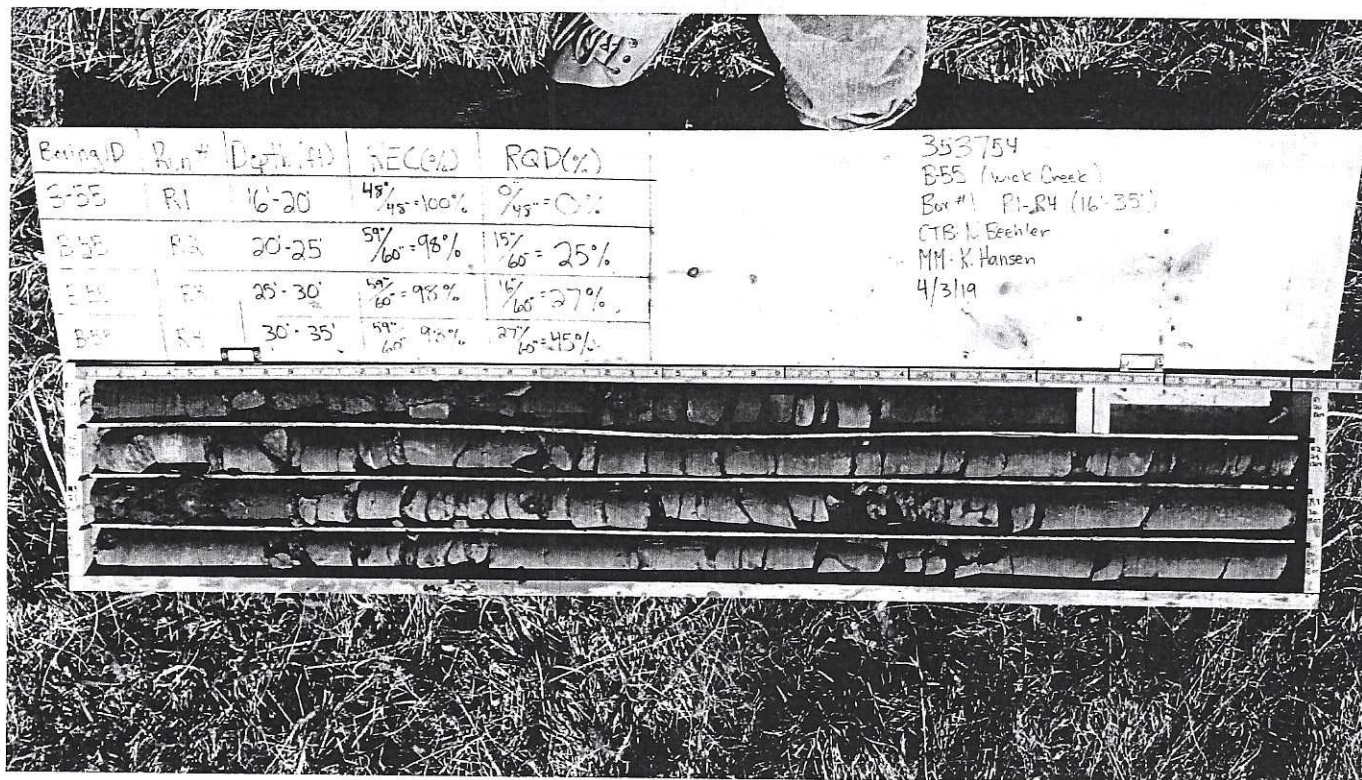 Boring ID Run # Depth (ft) REC(%) RQD(%)
B-55 R1 16'-20' 48"/48" = 100% 0"/48" = 0%
B-55 R2 20'-25' 59"/60" = 98% 15"/60" = 25%
B-55 R3 25'-30' 59"/60" = 98% 16"/60" = 27%
B-55 R4 30'-35' 59"/60" = 98% 27"/60" = 45%
353754
B-55 (Wick Creek)
Box #1 R1-R4 (16'-35')
CTB: Beehler
MM: K. Hansen
4/3/19